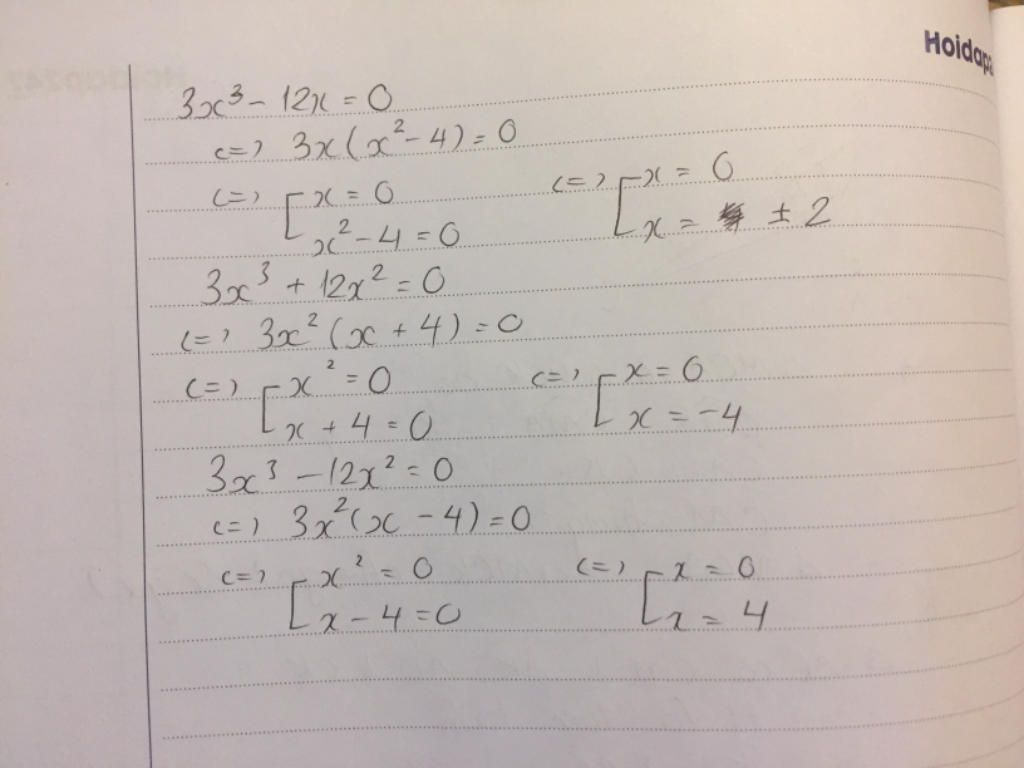 Hoidap
3x³ - 12x = 0
<=> 3x(x² - 4) = 0
<=> [ x = 0 <=> [ x = 0
x² - 4 = 0 x = ± 2
3x³ + 12x² = 0
<=> 3x² (x + 4) = 0
<=> [ x² = 0 <=> [ x = 0
x + 4 = 0 x = -4
3x³ - 12x² = 0
<=> 3x² (x - 4) = 0
<=> [ x² = 0 <=> [ x = 0
x - 4 = 0 x = 4